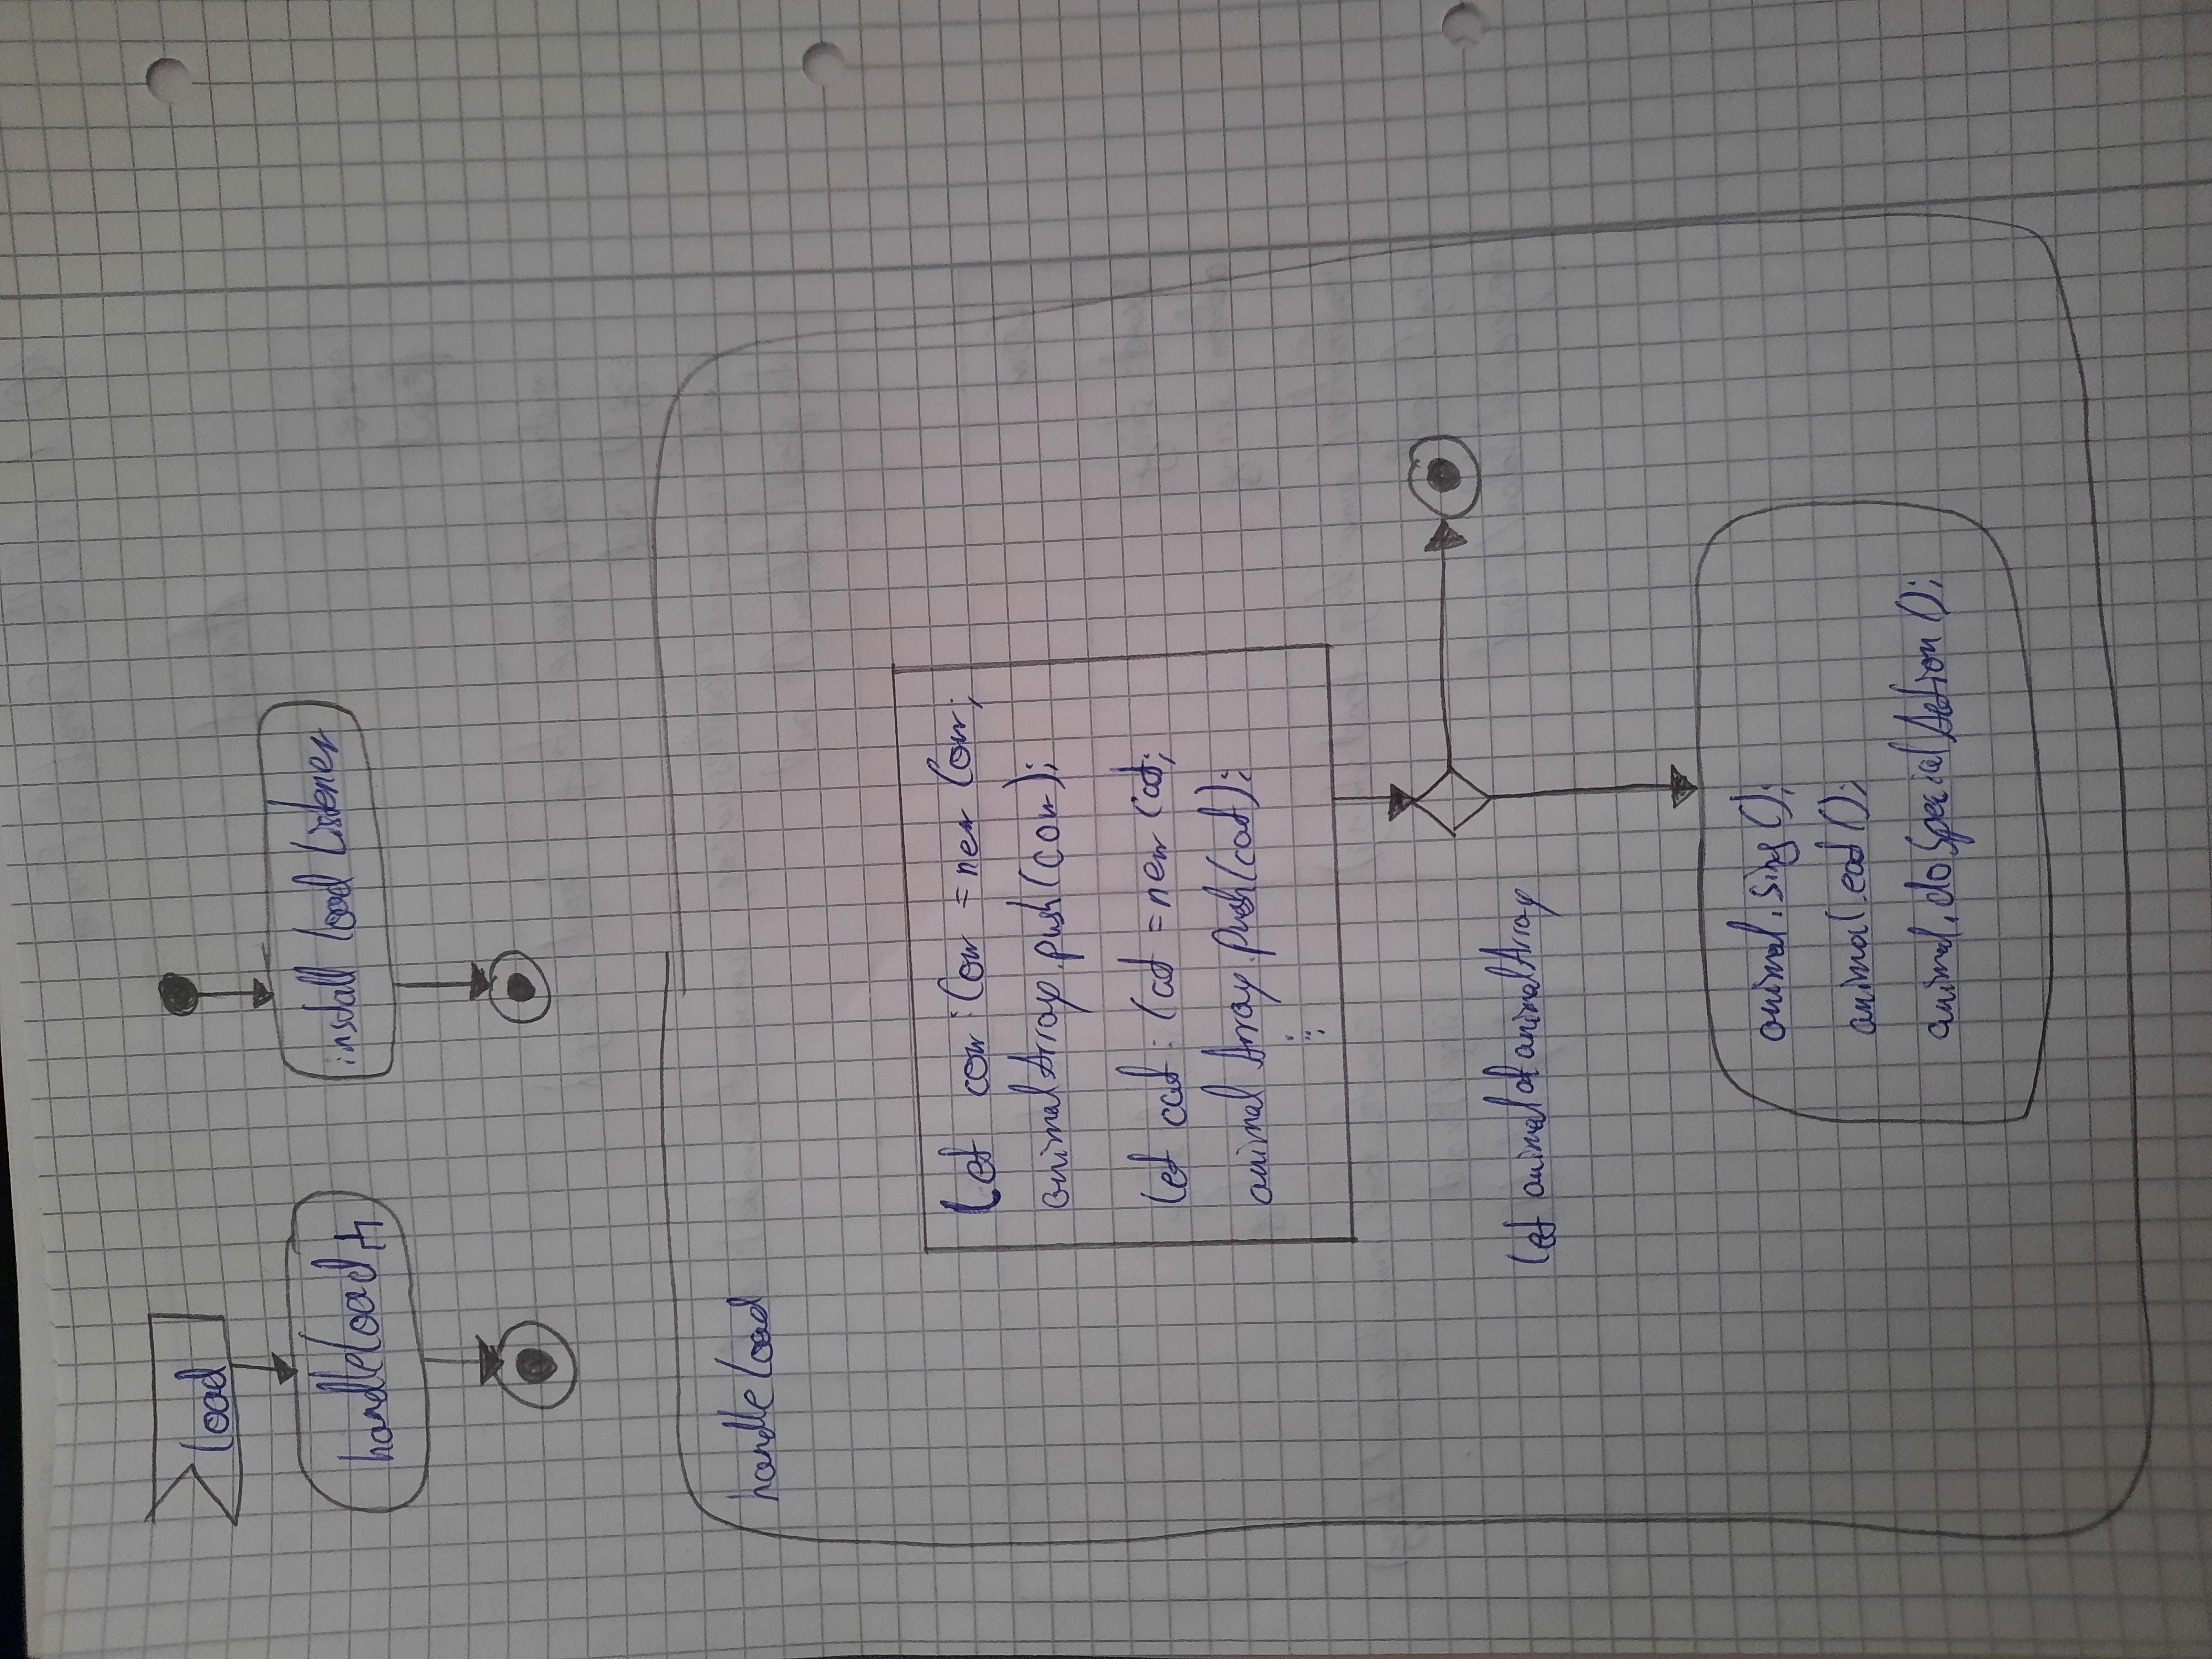 load
handleLoad
install load Listener
handleLoad
let cow : Cow = new Cow;
animalArray.push(cow);
let cat : Cat = new Cat;
animalArray.push(cat);
⋮
let animal of animalArray
animal.sing();
animal.eat();
animal.doSpecialAction();